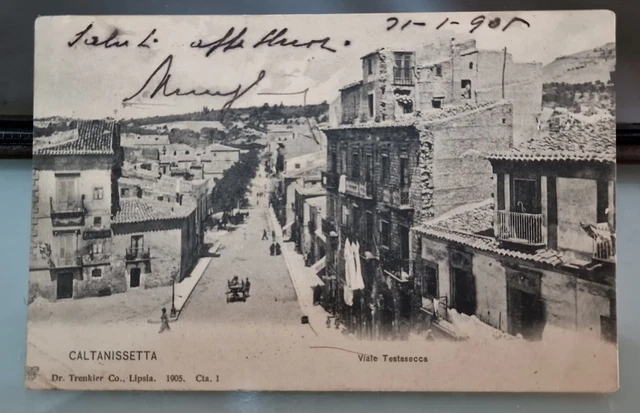 Saluti affettuosi. 21-1-905
CALTANISSETTA
Viale Testasecca
Dr. Trenkler Co., Lipsia. 1905. Cta. 1